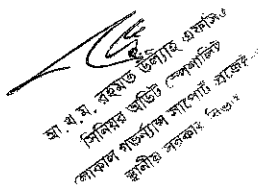 মো. ম. রহমাত উল্যাহ এফসিএ
সিনিয়র অডিট স্পেশালিস্ট
লোকাল গভর্ন্যান্স সাপোর্ট প্রজেক্ট
স্থানীয় সরকার